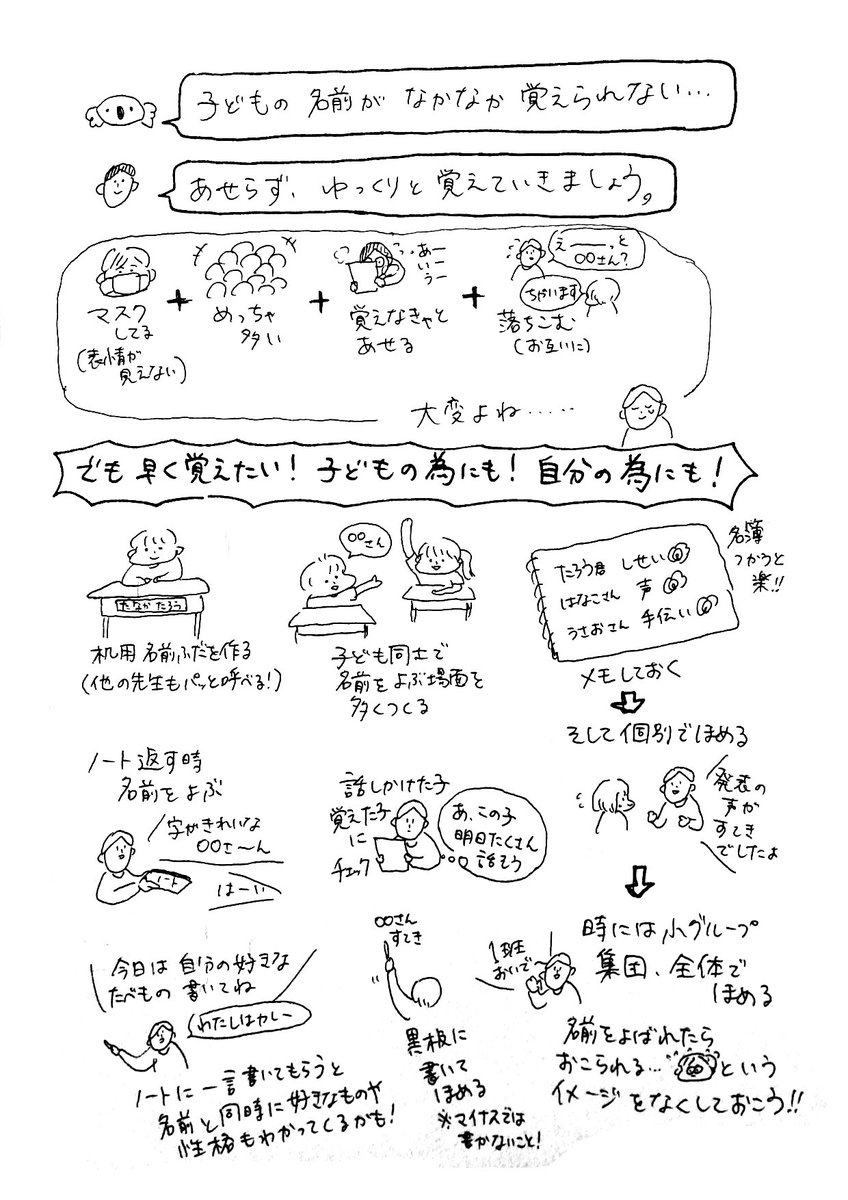 子どもの名前がなかなか覚えられない…
あせらず、ゆっくりと覚えていきましょう。
マスク
してる
(表情が
見えない)
+
めっちゃ
多い
+
あー
いー
うー
覚えなきゃと
あせる
+
えーーっと
〇〇さん?
ちがいます
落ちこむ
(お互いに)
大変よね……
でも早く覚えたい!子どもの為にも!自分の為にも!
たなか たろう
机用名前ふだを作る
(他の先生もパッと呼べる!)
〇〇さん
子ども同士で
名前をよぶ場面を
多くつくる
たろう君 しせい
はなこさん 声
うさおさん 手伝い
名簿
つかうと
楽!!
メモしておく
そして個別でほめる
発表の
声が
すてき
でしたよ
ノート返す時
名前をよぶ
字がきれいな
〇〇さ〜ん
ノート
はーい
話しかけた子
覚えた子
に
チェック
あ、この子
明日たくさん
話そう
時には小グループ
集団、全体で
ほめる
1班
おいで
今日は自分の好きな
たべもの書いてね
わたしはカレー
ノートに一言書いてもらうと
名前と同時に好きなものや
性格もわかってくるかも!
〇〇さん
すてき
黒板に
書いて
ほめる
※マイナスでは
書かないこと!
名前をよばれたら
おこられる…という
イメージをなくしておこう!!